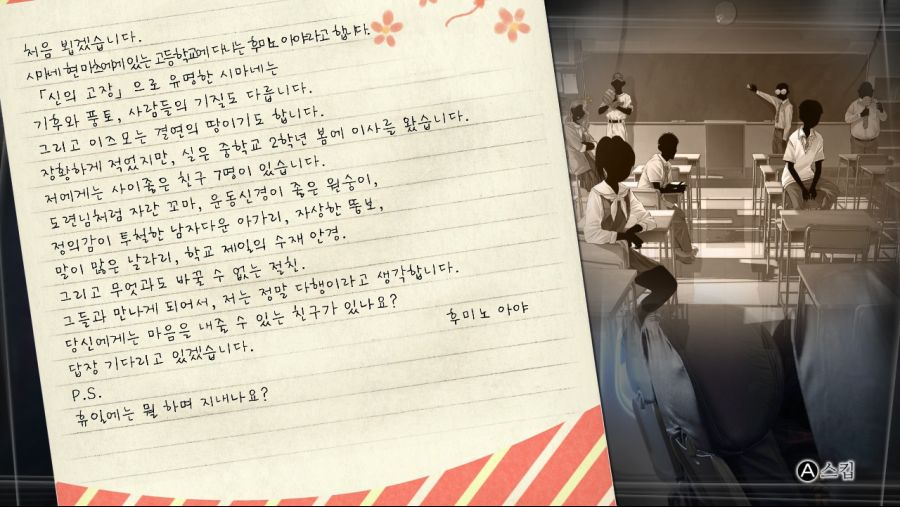 처음 뵙겠습니다.
시마네 현 마츠에에 있는 고등학교에 다니는 후미노 아야라고 합니다.
「신의 고장」으로 유명한 시마네는
기후와 풍토, 사람들의 기질도 다릅니다.
그리고 이즈모는 경연의 땅이기도 합니다.
장황하게 적었지만, 실은 중학교 2학년 봄에 이사를 왔습니다.
저에게는 사이좋은 친구 7명이 있습니다.
도련님처럼 자란 꼬마, 운동신경이 좋은 원숭이,
정의감이 투철한 남자다운 아가리, 자상한 뚱보,
말이 많은 날라리, 학교 제일의 수재 안경.
그리고 무엇과도 바꿀 수 없는 절친.
그들과 만나게 되어서, 저는 정말 다행이라고 생각합니다.
당신에게는 마음을 내줄 수 있는 친구가 있나요?
후미노 아야
답장 기다리고 있겠습니다.
P.S.
휴일에는 뭘 하며 지내나요?
A 스킵